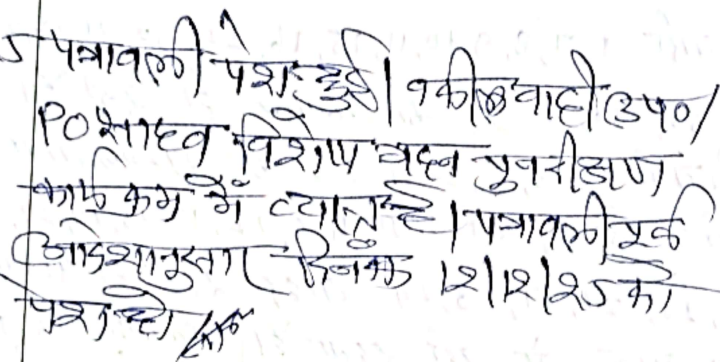 5 पत्रावली पेश हुई। वकील वादी उप०/
PO साहब विशेष गहन पुनरीक्षण
कार्यक्रम में व्यस्त है। पत्रावली पूर्व
आदेशानुसार दिनांक 12/12/25 को
पेश हो